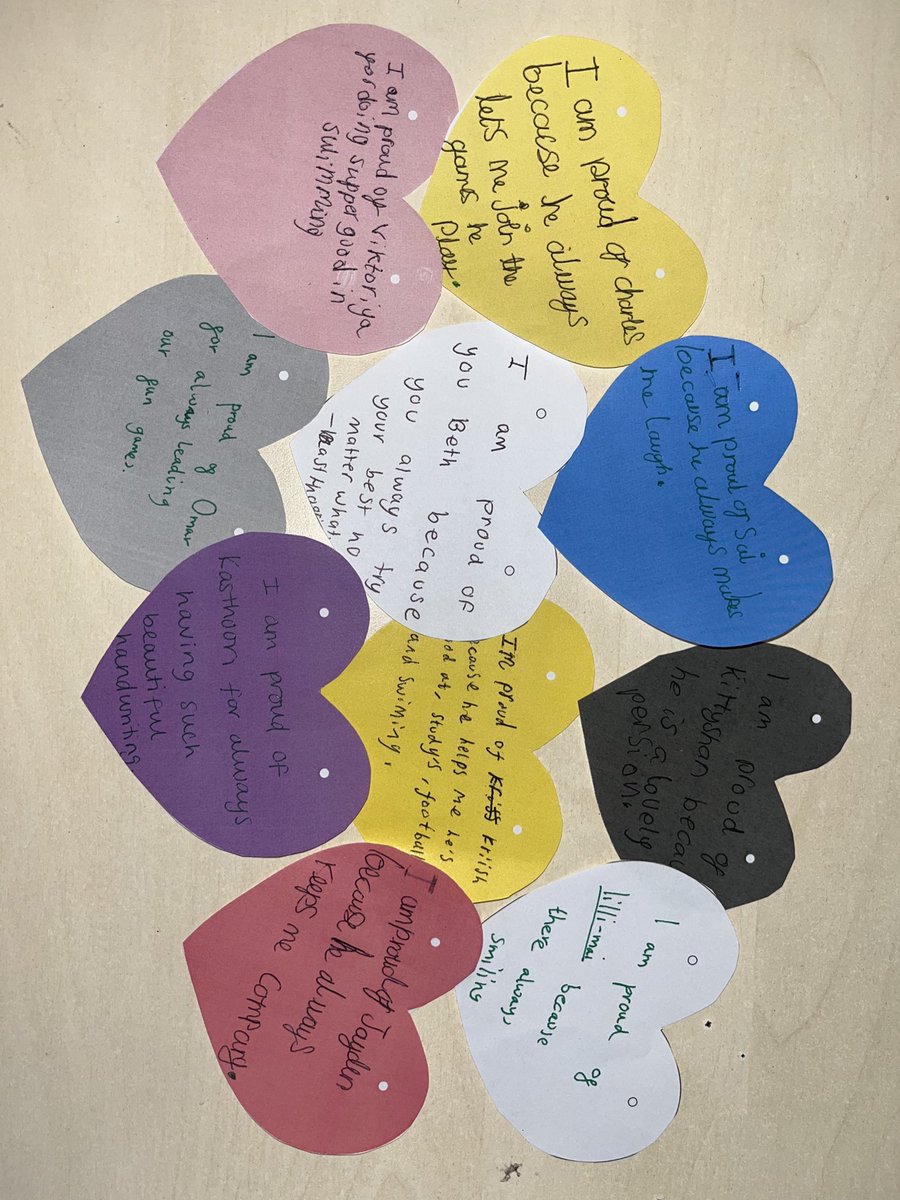 I am proud of Viktoriya
for doing supper good in
swimming
I am proud of charles
because he always
lets me join the
games he
Play.
I am proud of Omar
for always leading
our fun games.
I am proud of
you Beth because
you always try
your best no
matter what
I am proud of Sai
because he always makes
me laugh.
I am proud of
Kasthoon for always
having such
beautiful
handwriting
I'm proud of Kriish
because he helps me he's
good at, study's, football
and swiming.
I am proud of
Kittyshan becau
he is a lovely
persion.
I am proud of Jayden
because he always
keeps me Company.
I am proud of
lilli-mai because
there always
smiling